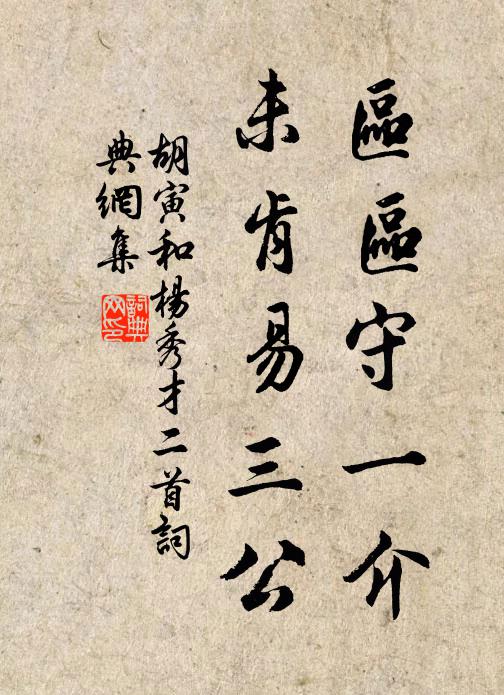 區區守一介
未肯易三公
胡寅和楊秀才二首詞
典網集
詞典網印